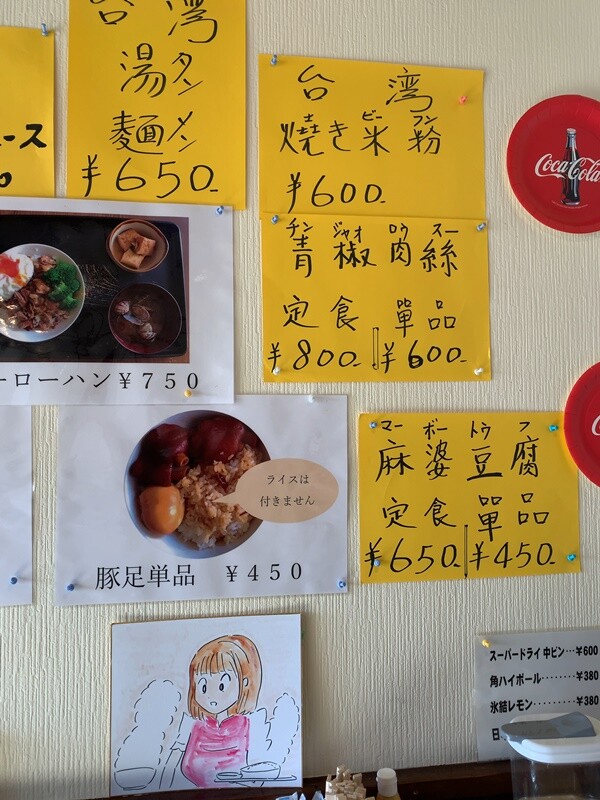 ース
台湾
湯タン
麺メン
¥650-
台湾
焼き米ビー粉フン
¥600-
チン ジャオ ロウ スー
青椒肉絲
定食 單品
¥800- ¥600-
ーローハン¥750
ライスは
付きません
豚足単品 ¥450
マー ボー トウ フ
麻婆豆腐
定食 單品
¥650- ¥450-
Coca-Cola
スーパードライ 中ビン…¥600
角ハイボール………¥380
氷結レモン………¥380
日